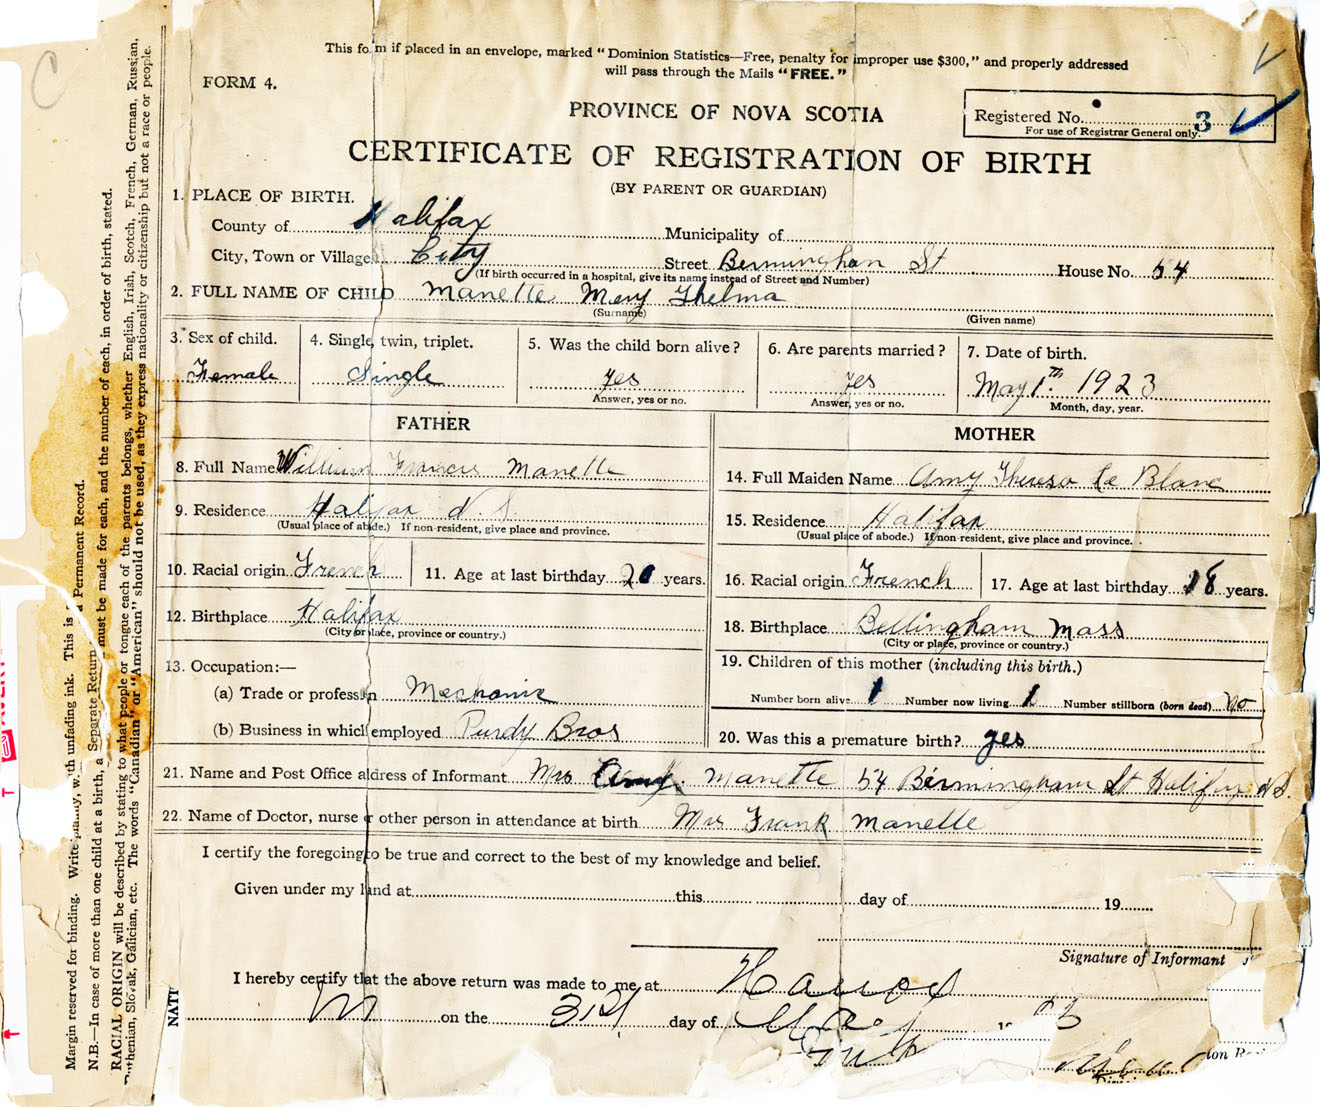 This form if placed in an envelope, marked "Dominion Statistics—Free, penalty for improper use $300," and properly addressed
will pass through the Mails "FREE."
FORM 4.
PROVINCE OF NOVA SCOTIA
Registered No. 3
For use of Registrar General only.
CERTIFICATE OF REGISTRATION OF BIRTH
(BY PARENT OR GUARDIAN)
1. PLACE OF BIRTH.
County of Halifax Municipality of
City, Town or Village City Street Bermingham St House No. 54
(If birth occurred in a hospital, give its name instead of Street and Number)
2. FULL NAME OF CHILD Manette Mery Thelma
(Surname) (Given name)
3. Sex of child. 4. Single, twin, triplet. 5. Was the child born alive? 6. Are parents married? 7. Date of birth.
Female Single yes yes May 1th 1923
Answer, yes or no. Answer, yes or no. Month, day, year.
FATHER
8. Full Name William Francis Manette
9. Residence Halifax N.S.
(Usual place of abode.) If non-resident, give place and province.
10. Racial origin French 11. Age at last birthday 20 years.
12. Birthplace Halifax
(City or place, province or country.)
13. Occupation:—
(a) Trade or profession Mechanic
(b) Business in which employed Purdy Bros
MOTHER
14. Full Maiden Name Amy Theresa Le Blanc
15. Residence Halifax
(Usual place of abode.) If non-resident, give place and province.
16. Racial origin French 17. Age at last birthday 18 years.
18. Birthplace Bellingham Mass
(City or place, province or country.)
19. Children of this mother (including this birth.)
Number born alive 1 Number now living 1 Number stillborn (born dead) No
20. Was this a premature birth? yes
21. Name and Post Office address of Informant Mrs Amy. Manette 54 Bermingham St Halifax N.S.
22. Name of Doctor, nurse or other person in attendance at birth Mrs Frank Manette
I certify the foregoing to be true and correct to the best of my knowledge and belief.
Given under my hand at this day of 19
Signature of Informant
I hereby certify that the above return was made to me at
on the 31st day of 19 23
Margin reserved for binding. Write plainly, with unfading ink. This is a Permanent Record.
N.B.—In case of more than one child at a birth, a Separate Return must be made for each, and the number of each, in order of birth, stated.
RACIAL ORIGIN will be described by stating to what people or tongue each of the parents belongs, whether English, Irish, Scotch, French, German, Russian,
Ruthenian, Slovak, Galician, etc. The words "Canadian" or "American" should not be used, as they express nationality or citizenship but not a race or people.